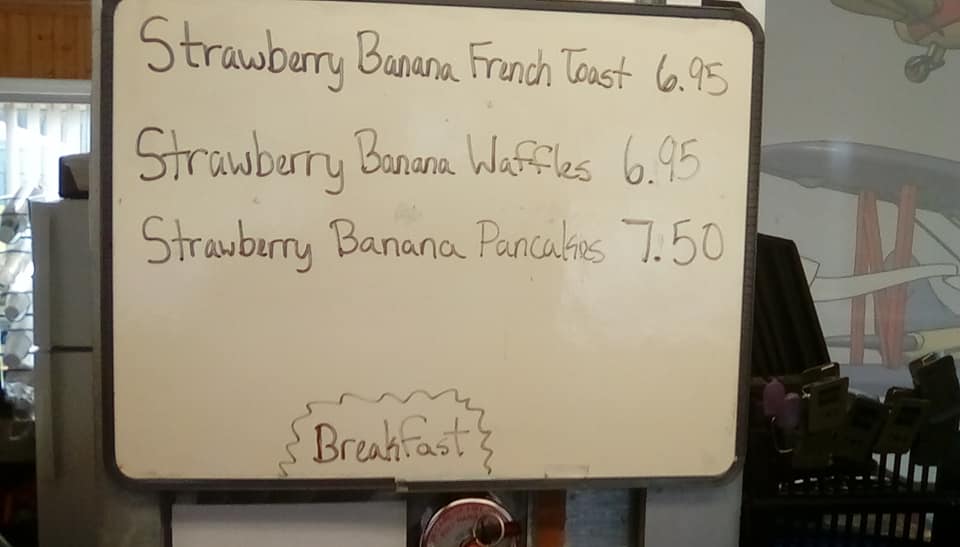 Strawberry Banana French Toast 6.95
Strawberry Banana Waffles 6.95
Strawberry Banana Pancakes 7.50
Breakfast